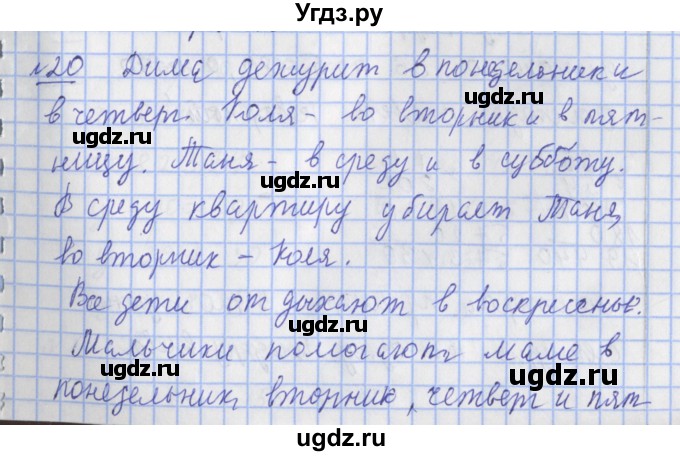 Угдз.ру
№20 Дима дежурит в понедельник и
в четверг. Коля - во вторник и в пят-
ницу. Таня - в среду и в субботу.
В среду квартиру убирает Таня,
во вторник - Коля.
Все дети отдыхают в воскресенье.
Мальчики помогают маме в
понедельник, вторник, четверг и пят
ugdz.ru
ugdz.ru
ugdz.ru
ugdz.ru
ugdz.ru
ugdz.ru
ugdz.ru
ugdz.ru